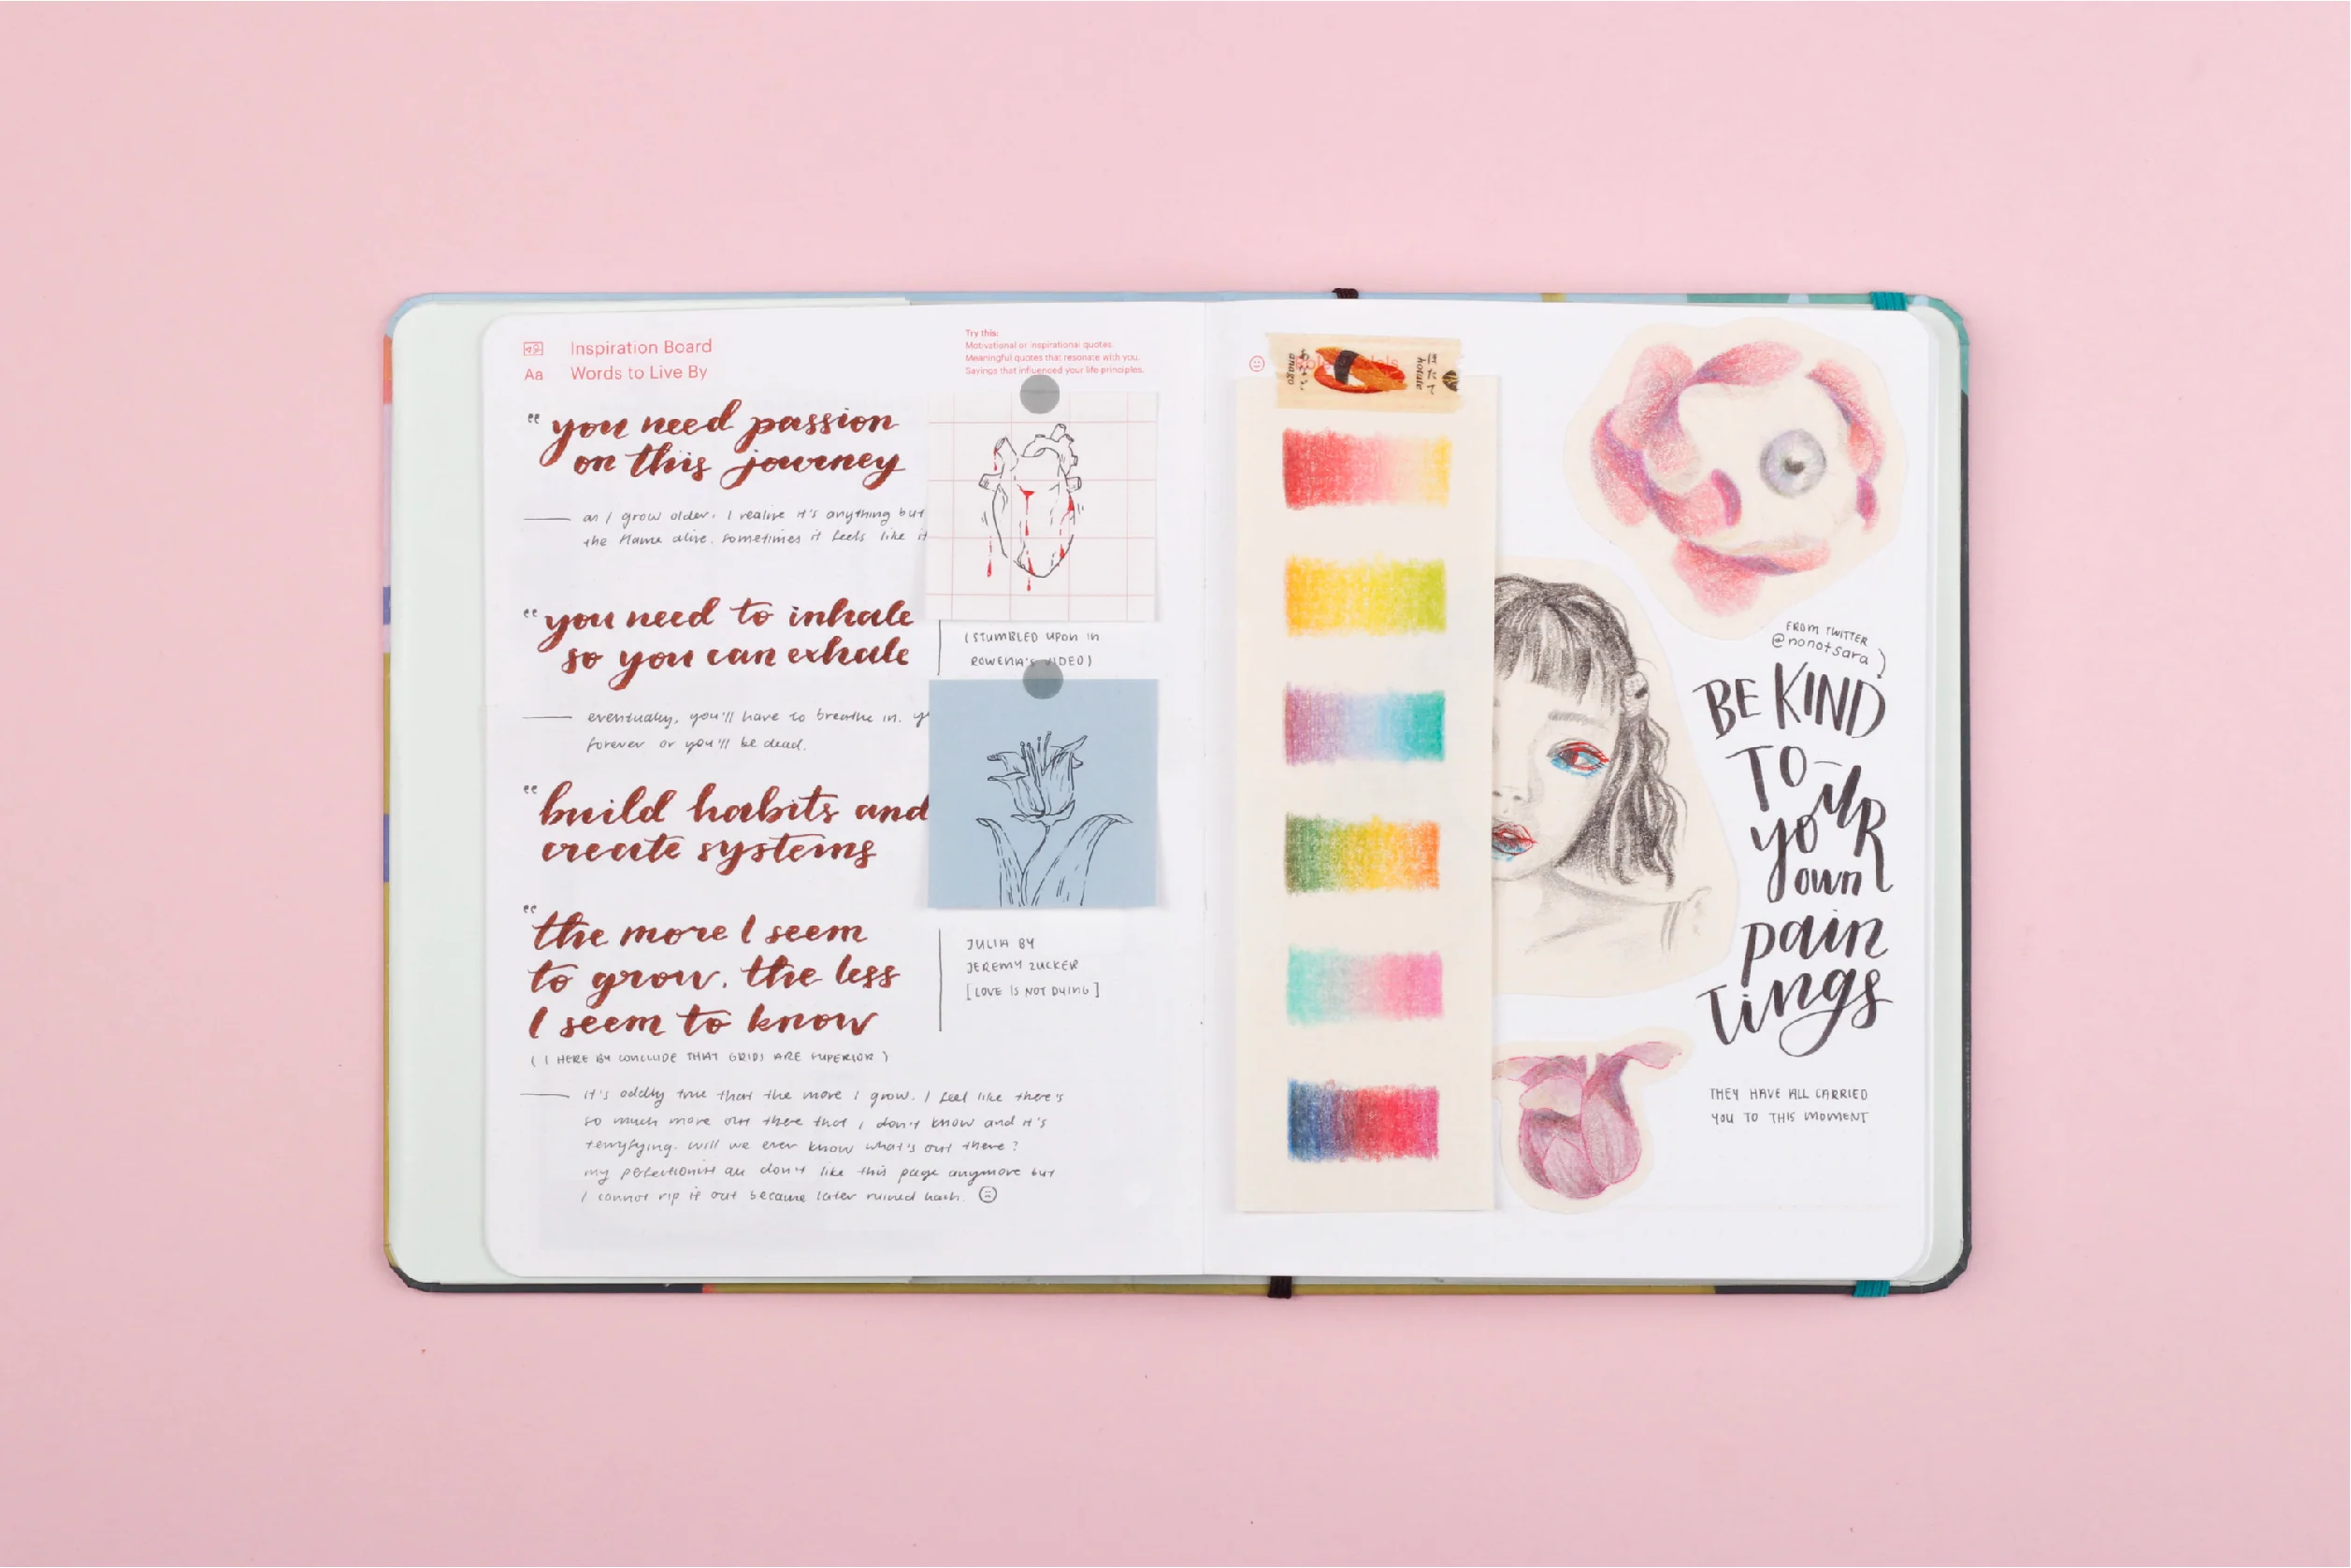 Inspiration Board
Aa Words to Live By
Try this:
Motivational or inspirational quotes.
Meaningful quotes that resonate with you.
Sayings that influenced your life principles.
“you need passion
on this journey
as I grow older, I realise it's anything but
the flame alive. sometimes it feels like it
“you need to inhale
so you can exhale
eventually, you'll have to breathe in.
forever or you'll be dead.
“build habits and
create systems
“the more I seem
to grow, the less
I seem to know
(I HERE BY CONCLUDE THAT GRIDS ARE SUPERIOR)
it's oddly true that the more I grow, I feel like there's
so much more out there that I don't know and it's
terryfying. will we ever know what's out there?
my don't like this page anymore but
I cannot rip it out because later ruined
(STUMBLED UPON IN
ROWENA'S VIDEO)
JULIA BY
JEREMY ZUCKER
[LOVE IS NOT DYING]
anago
hotate
FROM TWITTER
@nonotsara)
BE KIND
TO
yoUR
own
pain
Tings
THEY HAVE ALL CARRIED
YOU TO THIS MOMENT